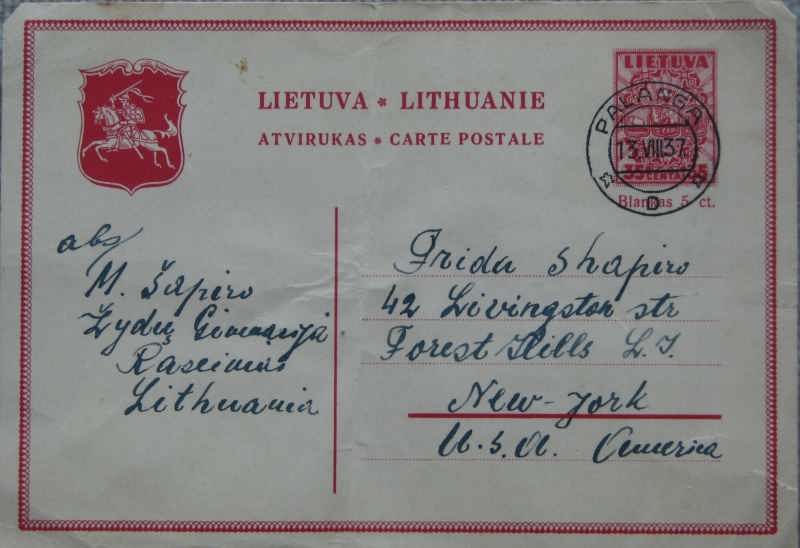 LIETUVA * LITHUANIE
ATVIRUKAS * CARTE POSTALE
LIETUVA
35 CENTAI 35
Blankas 5 ct.
PALANGA
13.VIII.37
D
abs
M. Šapiro
Žydų Gimnazija
Raseiniai
Lithuania
Frida Shapiro
42 Livingston str
Forest Hills L. I.
New-York
U.S.A. America